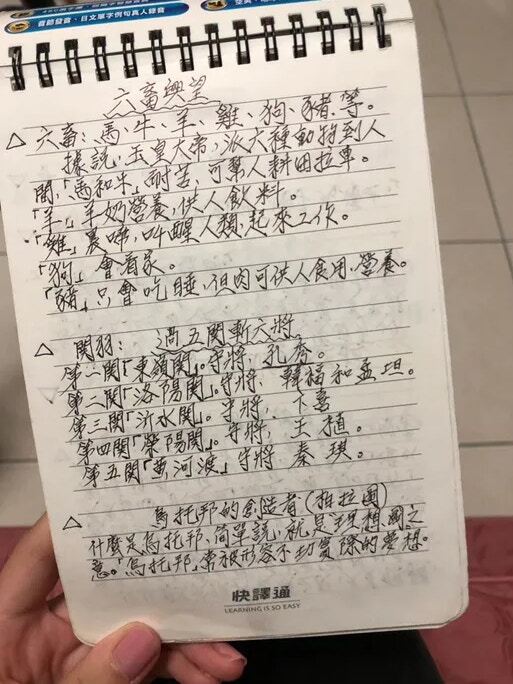 首節發音、日文單字例句真人錄音
六畜興望
△ 六畜：馬、牛、羊、雞、狗、豬、等。
據說，玉皇大帝，派六種動物到人
間，「馬和牛」耐苦，可幫人耕田拉車。
「羊」，羊奶營養，供人飲料。
「雞」晨啼，叫醒人類，起來工作。
「狗」會看家。
「豬」只會吃睡，但肉可供人食用，營養。
△ 関羽：過五関斬六將。
第一関「東嶺関」。守將，孔秀。
第二関「洛陽関」。守將，韓福和孟坦。
第三関「沂水関」。守將，卞喜
第四関「滎陽関」。守將，王植。
第五関「黄河渡」守將 秦琪。
△ 烏托邦的創造者（柏拉圖）
什麼是烏托邦、簡單說，就是理想國之
意。「烏托邦」常被形容不切實際的夢想。
快譯通
LEARNING IS SO EASY